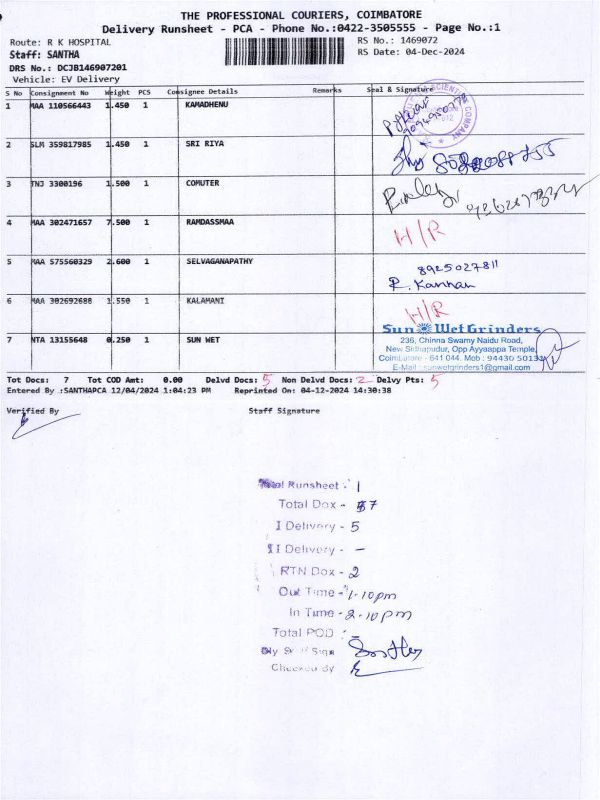 THE PROFESSIONAL COURIERS, COIMBATORE
Delivery Runsheet - PCA - Phone No.:0422-3505555 - Page No.:1
Route: R K HOSPITAL RS No.: 1469072
Staff: SANTHA RS Date: 04-Dec-2024
DRS No.: DCJB146907201
Vehicle: EV Delivery
S No Consignment No Weight PCS Consignee Details Remarks Seal & Signature
1 MAA 110566443 1.450 1 KAMADHENU
2 SLM 359817985 1.450 1 SRI RIYA
3 TNJ 3300196 1.500 1 COMUTER
4 MAA 302471657 7.500 1 RAMDASSMAA H/R
5 MAA 575560329 2.600 1 SELVAGANAPATHY 8925027811
R. Kannan
6 MAA 302692688 1.550 1 KALAMANI H/R
7 NTA 13155648 0.250 1 SUN WET Sun Wet Grinders
236, Chinna Swamy Naidu Road,
New Sidhapudur, Opp Ayyaappa Temple,
Coimbatore - 641 044. Mob : 94430 50133
E-Mail : sunwetgrinders1@gmail.com
Tot Docs: 7 Tot COD Amt: 0.00 Delvd Docs: 5 Non Delvd Docs: 2 Delvy Pts: 5
Entered By :SANTHAPCA 12/04/2024 1:04:23 PM Reprinted On: 04-12-2024 14:30:38
Verified By Staff Signature
Runsheet - 1
Total Dox - 7
I Delivery - 5
II Delivery - –
RTN Dox - 2
Out Time - 1-10 pm
In Time - 2-10 pm
Total POD :
Checked By